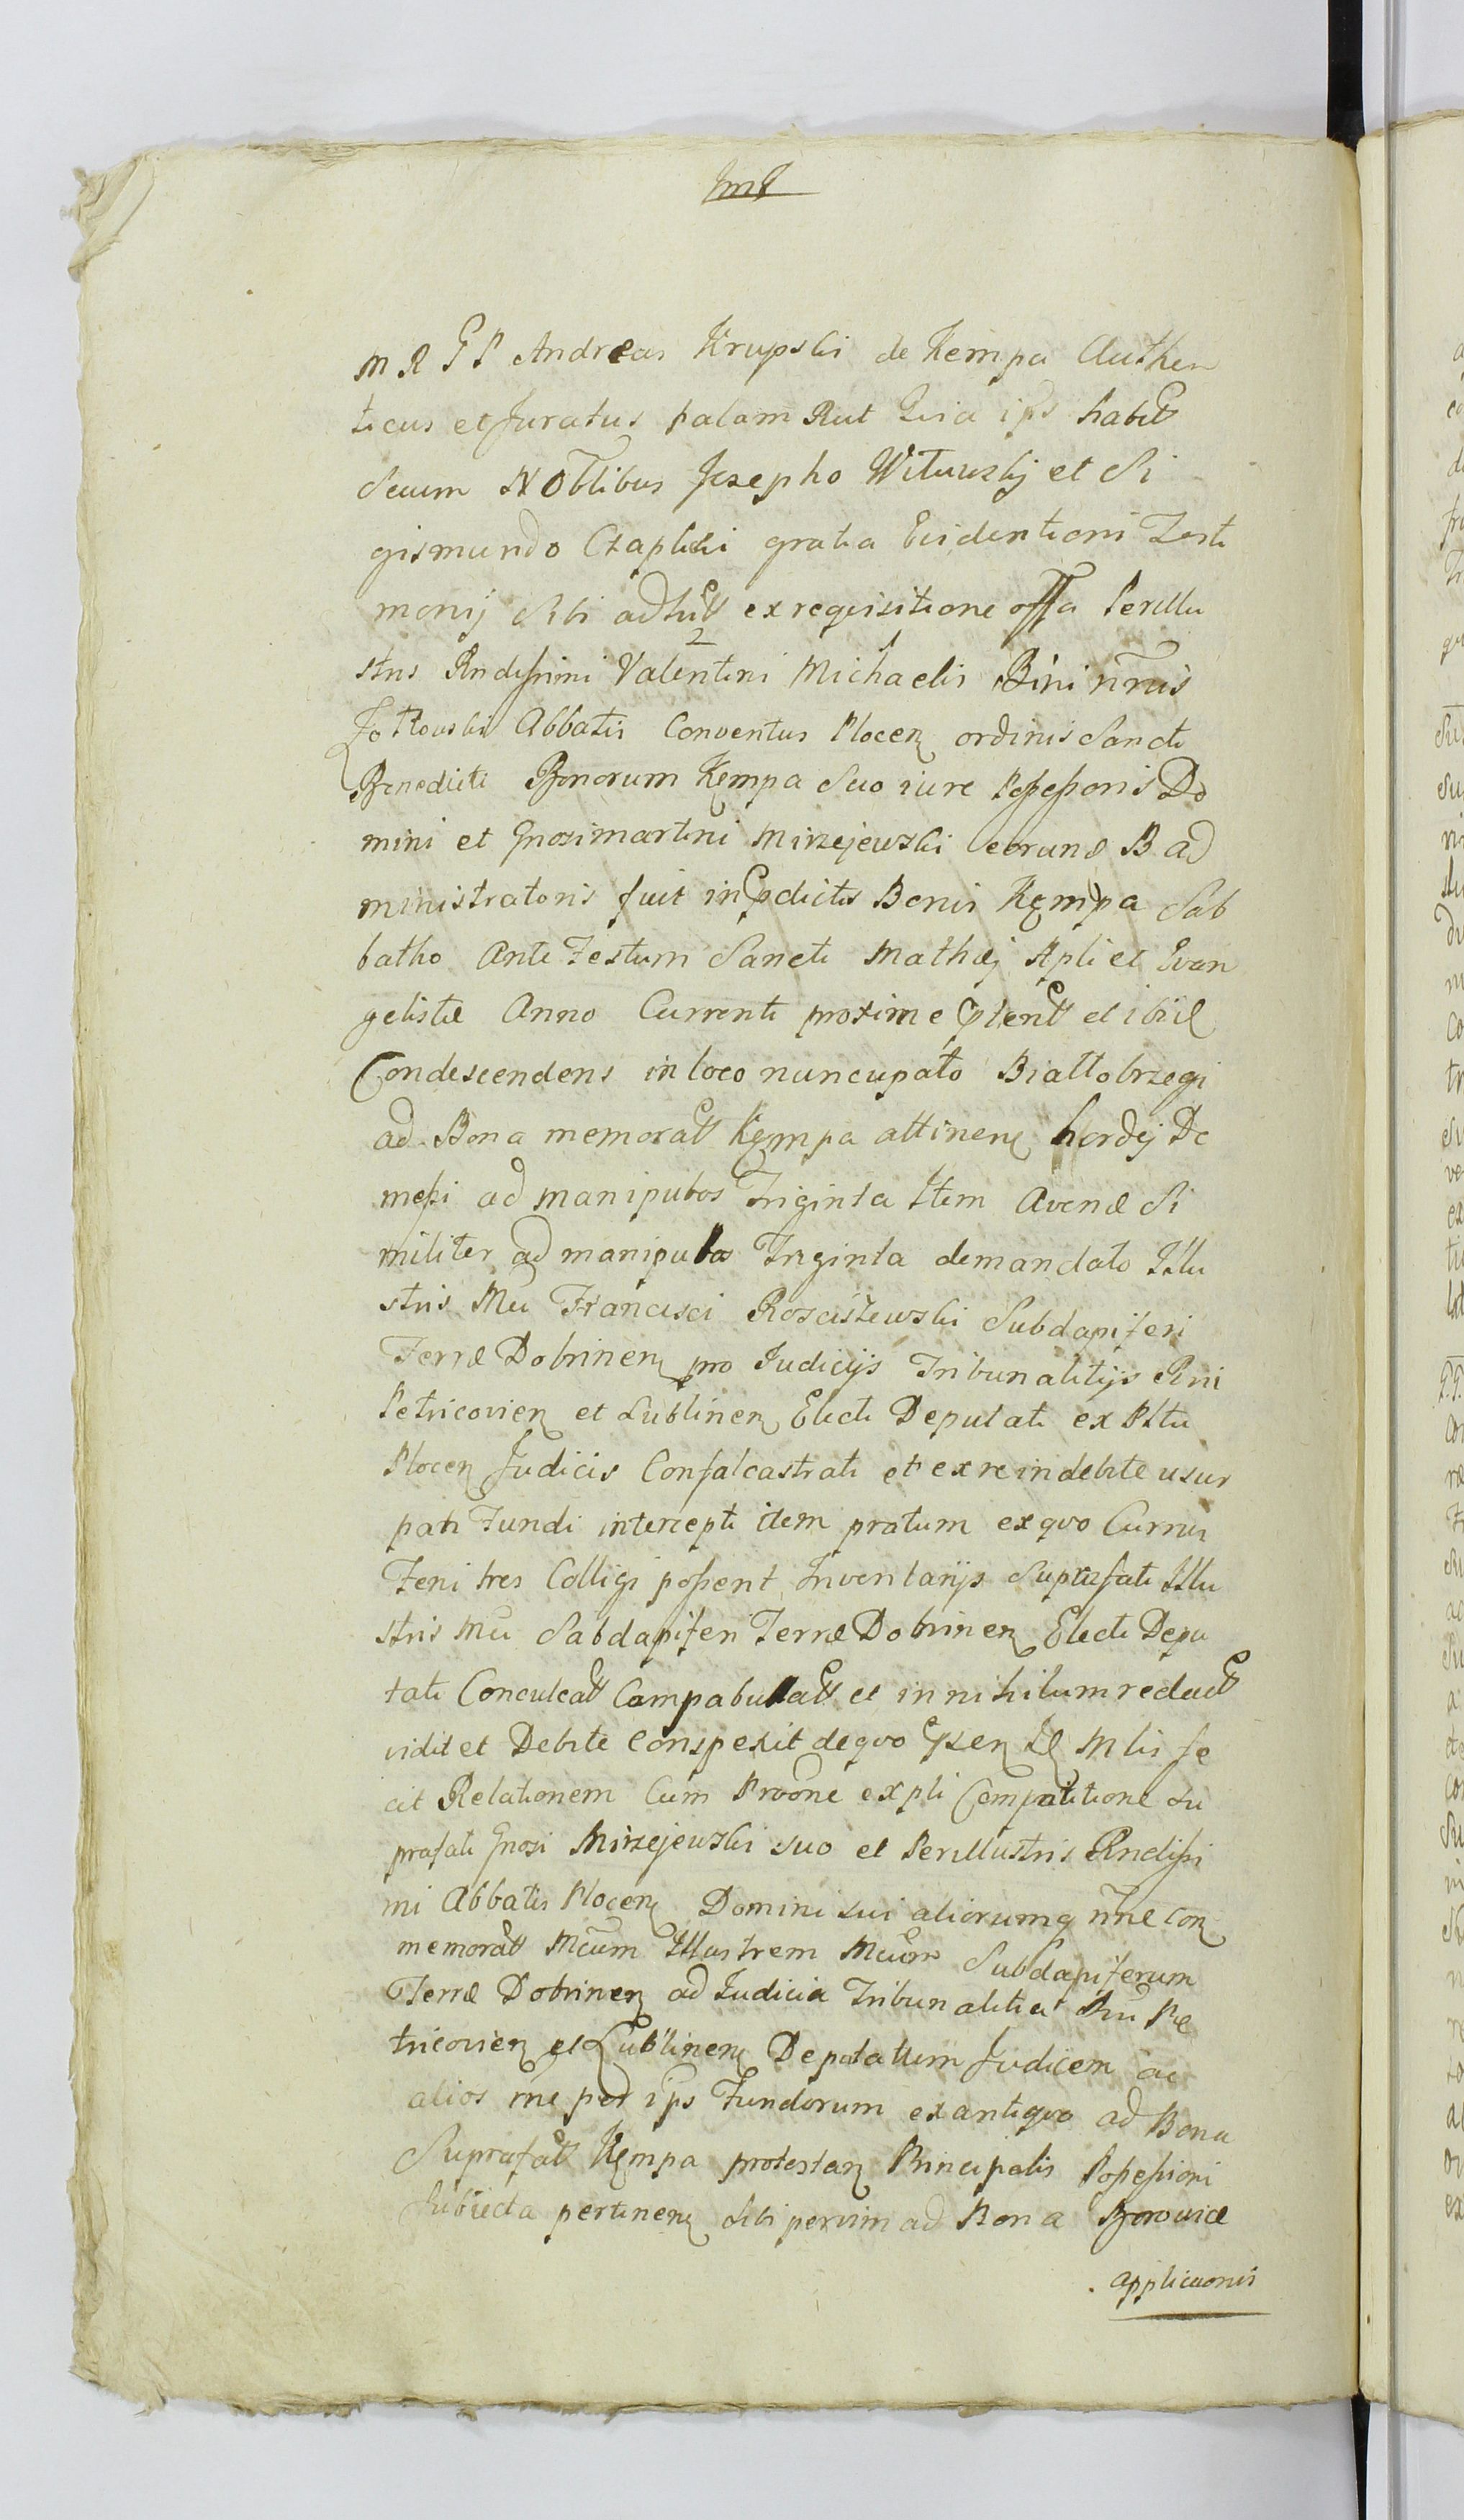 M R G P Andreas Krupski de Kempa Authen
ticus et Juratus palam Rut Quia ips habit
Secum Noblibus Josepho Witowskj et Si
gismundo Czaplicki gratia Evidentioris Testi
monij Sibi adhibt ex requisitione offa Perillu
stris Rndissimi Valentini Michaelis Bini nris
Jotkowski Abbatis Conventus Plocen ordinis Sancti
Benedicti Bonorum Kempa Suo iure Possessoris Do
mini et Gnosi Martini Mirzejewski eorund B ad
ministratoris fuit in pdictis Bonis Kempa Sab
batho Ante Festum Sancti Mathæj Apli et Evan
gelistæ Anno Currenti proxime ptent et ibid
Condescendens in loco nuncupato Biallobrzegi
ad Bona memorat Kempa attinen hordej De
messi ad manipulos Triginta Item Avenæ Si
militer ad manipulos Triginta de mandato Illu
stris Mci Francisci Rosciszewski Subdapiferi
Terræ Dobrinen pro Judicijs Tribunalitijs Rni
Petricovien et Lublinen Electi Deputati ex Pltu
Plocen Judicis Confalcastrati et ex re indebite usur
pati Fundi intercepti item pratum ex quo Currus
Feni tres Colligi possent Inventarijs Suprafati Illu
stris Mci Subdapiferi Terræ Dobrinen Electi Depu
tati Conculcat Compabulat et in nihilum redact
vidit et Debite Conspexit de quo psen Id Mlis fe
cit Relationem Cum Proone expli Comparitione Su
prafati Gnosi Mirzejewski suo et Perillustris Rndissi
mi Abbatis Plocen Domini sui aliorumq nne con
memorat Mcum Illustrem Mcum Subdapiferum
Terræ Dobrinen ad Judicia Tribunalitia Rni Pe
tricovien et Lublinen Deputatum Judicem ac
alios rne pod ips Fundorum ex antiquo ad Bona
Suprafat Kempa protestan Principalis Possessioni
Subiecta pertinen Sibi per vim ad Bona Borowice
applicaonis